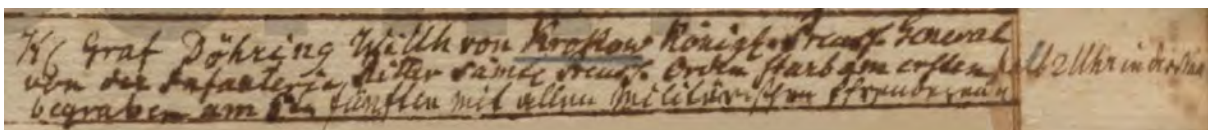 Graf Döhring Willh von Krokow Königl. Preuss. General
von der Infanterie, Ritter sämtl Preuss. Orden starb am ersten 2 Uhr in
begraben am fünften mit allen Militärischen